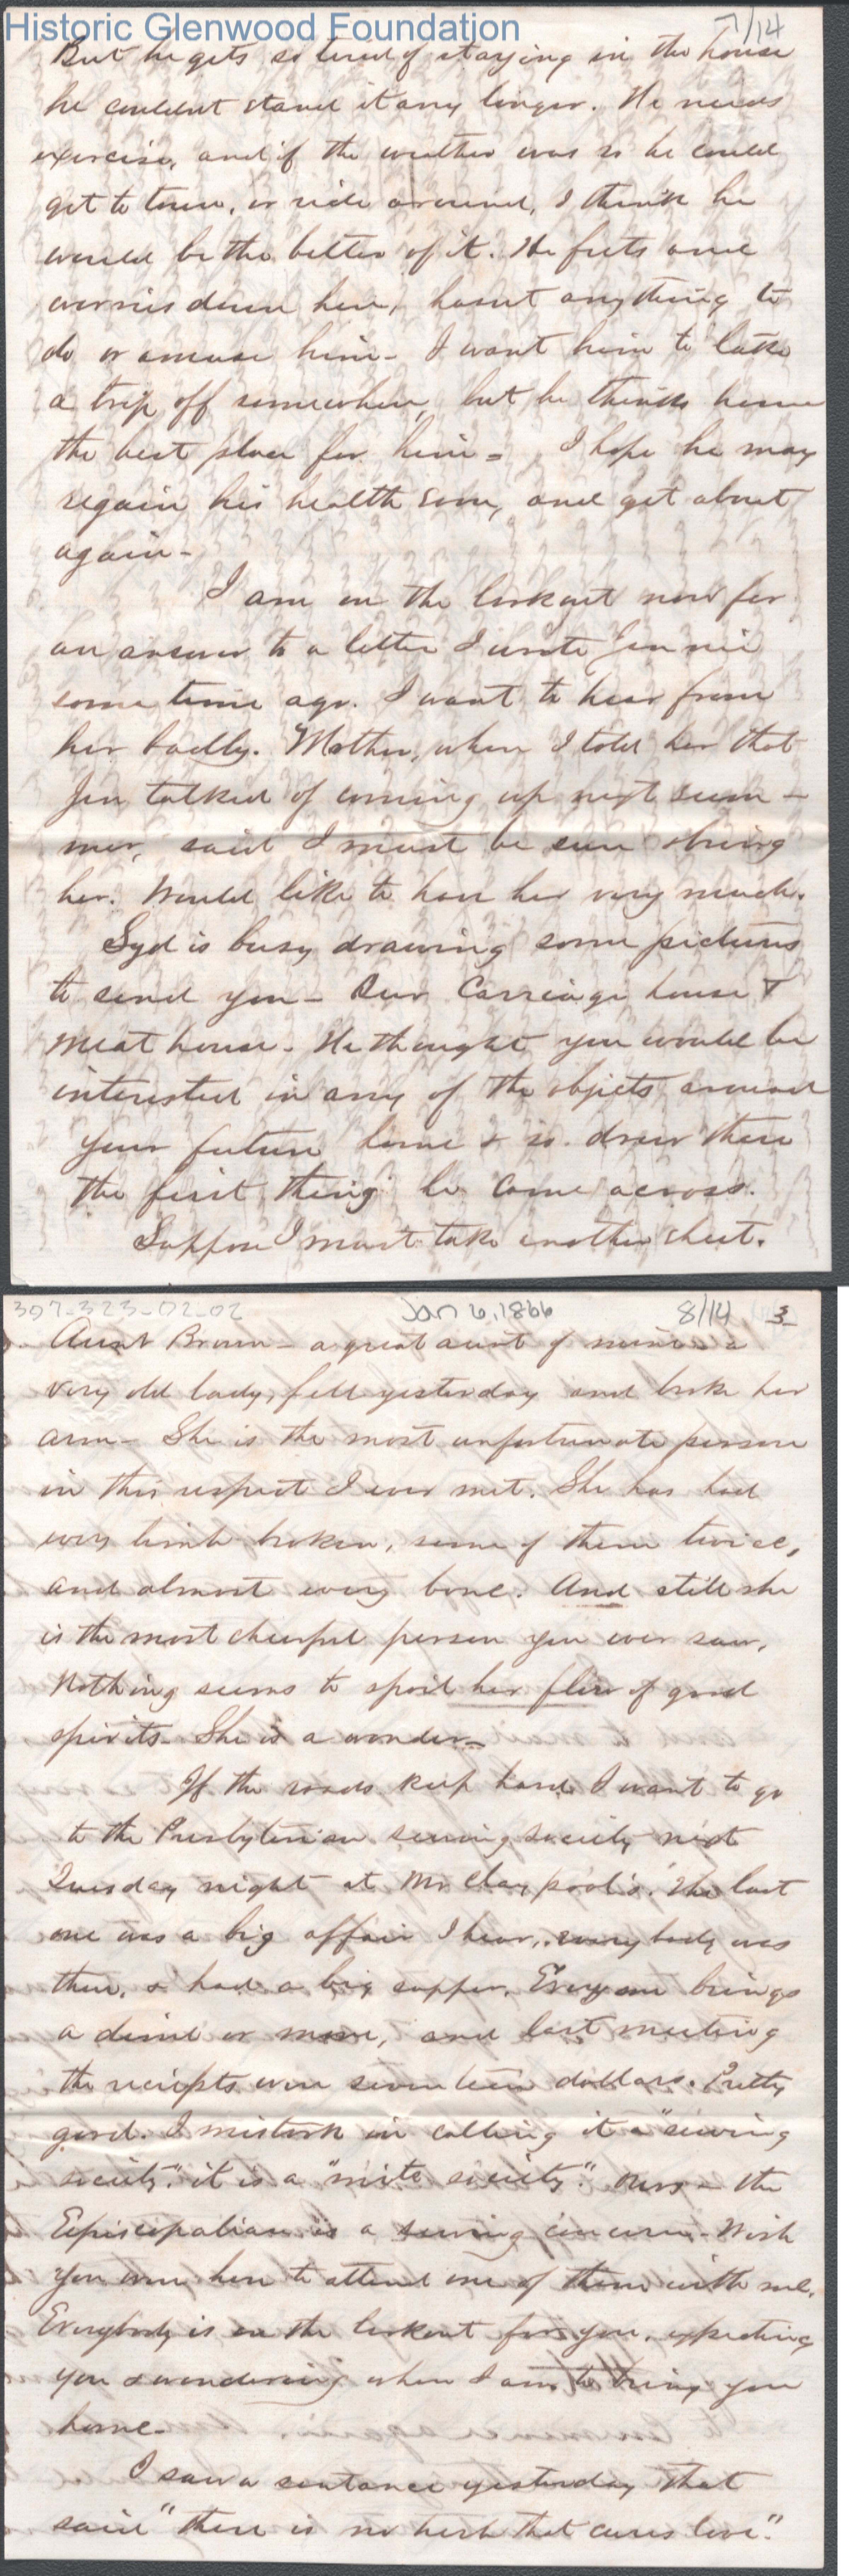 Historic Glenwood Foundation
7/14
But he gets so tired of staying in the house
he couldnt stand it any longer. He needs
exercise, and if the weather was so he could
get to town, or ride around, I think he
would be the better of it. He frets and
worries down here, hasnt anything to
do or amuse him - I want him to take
a trip off somewhere, but he thinks home
the best place for him = I hope he may
regain his health soon, and get about
again -
I am on the lookout now for
an answer to a letter I wrote Jennie
some time ago. I want to hear from
her badly. Mother, when I told her that
Jen talked of coming up next sum -
mer, said I must be sure & bring
her. Would like to have her very much.
Syd is busy drawing some pictures
to send you - Our Carriage house &
meat house. He thought you would be
interested in any of the objects around
your future home & so drew these
the first thing he came across.
Suppose I must take another sheet.
307-323-02-02 Jan 6, 1866 8/14 3
Aunt Brown - a great aunt of mine - a
very old lady, fell yesterday and broke her
arm - She is the most unfortunate person
in this respect I ever met. She has had
every limb broken, some of them twice,
and almost every bone. And still she
is the most cheerful person you ever saw.
Nothing seems to spoil her flow of good
spirits - She is a wonder -
If the roads keep hard I want to go
to the Presbyterian sewing society next
Tuesday night at Mr Claypool's. The last
one was a big affair I hear, everybody was
there, & had a big supper. Everyone brings
a dime or more, and last meeting
the reciepts were seventeen dollars. Pretty
good. I mistook in calling it a "sewing
society", it is a "mite society". Ours - the
Episcopalian is a sewing concern - Wish
you were here to attend one of them with me.
Everybody is on the lookout for you, expecting
you & wondering when I am to bring you
home -
I saw a sentance yesterday that
said "there is no herb that cures love".